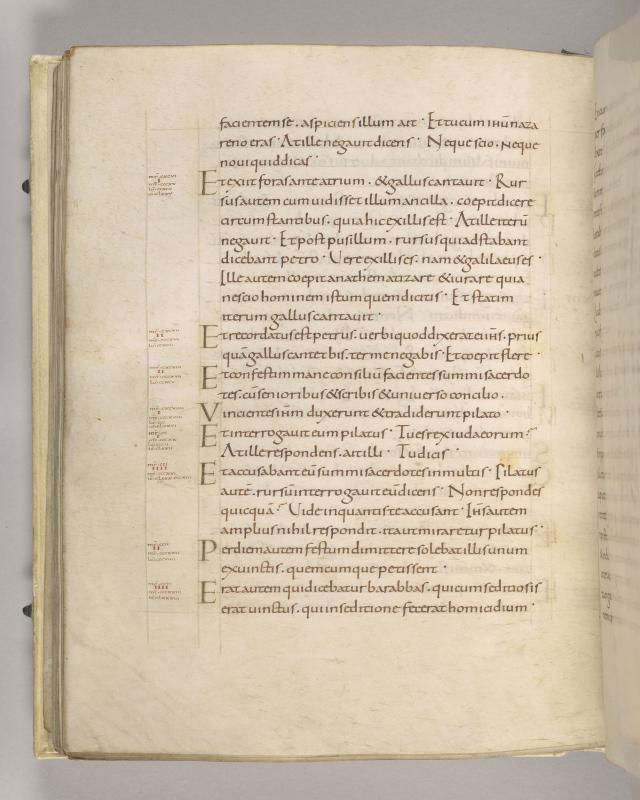 facientem se. aspiciens illum ait · Et tu cum ihu naza
reno eras · At ille negavit dicens · Neque scio. neque
novi quid dicas ·
Et exiit foras ante atrium. & gallus cantavit · Rur
sus autem cum vidisset illum ancilla. coepit dicere
circum stantibus. quia hic ex illis est · At ille iterū
negavit · Et post pusillum. rursus qui adstabant
dicebant petro · Vere ex illis es. nam & galilaeus es ·
Ille autem coepit anathematizare & iurare quia
nescio hominem istum quem dicitis · Et statim
iterum gallus cantavit ·
Et recordatus est petrus. verbi quod dixerat ei ihs. prius
quā gallus cantet bis. ter me negabis · Et coepit flere ·
Et confestim mane consiliū facientes summi sacerdo
tes. cū senioribus & scribis & universo concilio.
Vincientes ihm duxerunt & tradiderunt pilato ·
Et interrogavit eum pilatus · Tu es rex iudaeorum
At ille respondens. ait illi · Tu dicis ·
Et accusabant eū summi sacerdotes in multis · Pilatus
autē. rursū interrogavit eū dicens · Non respondes
quicquā · Vide in quantis te accusant · Ihs autem
amplius nihil respondit. ita ut miraretur pilatus ·
Per diem autem festum dimittere solebat illis unum
ex vinctis. quemcumque petissent ·
Erat autem qui dicebatur barabbas. qui cum seditiosis
erat vinctus. qui in seditione fecerat homicidium ·